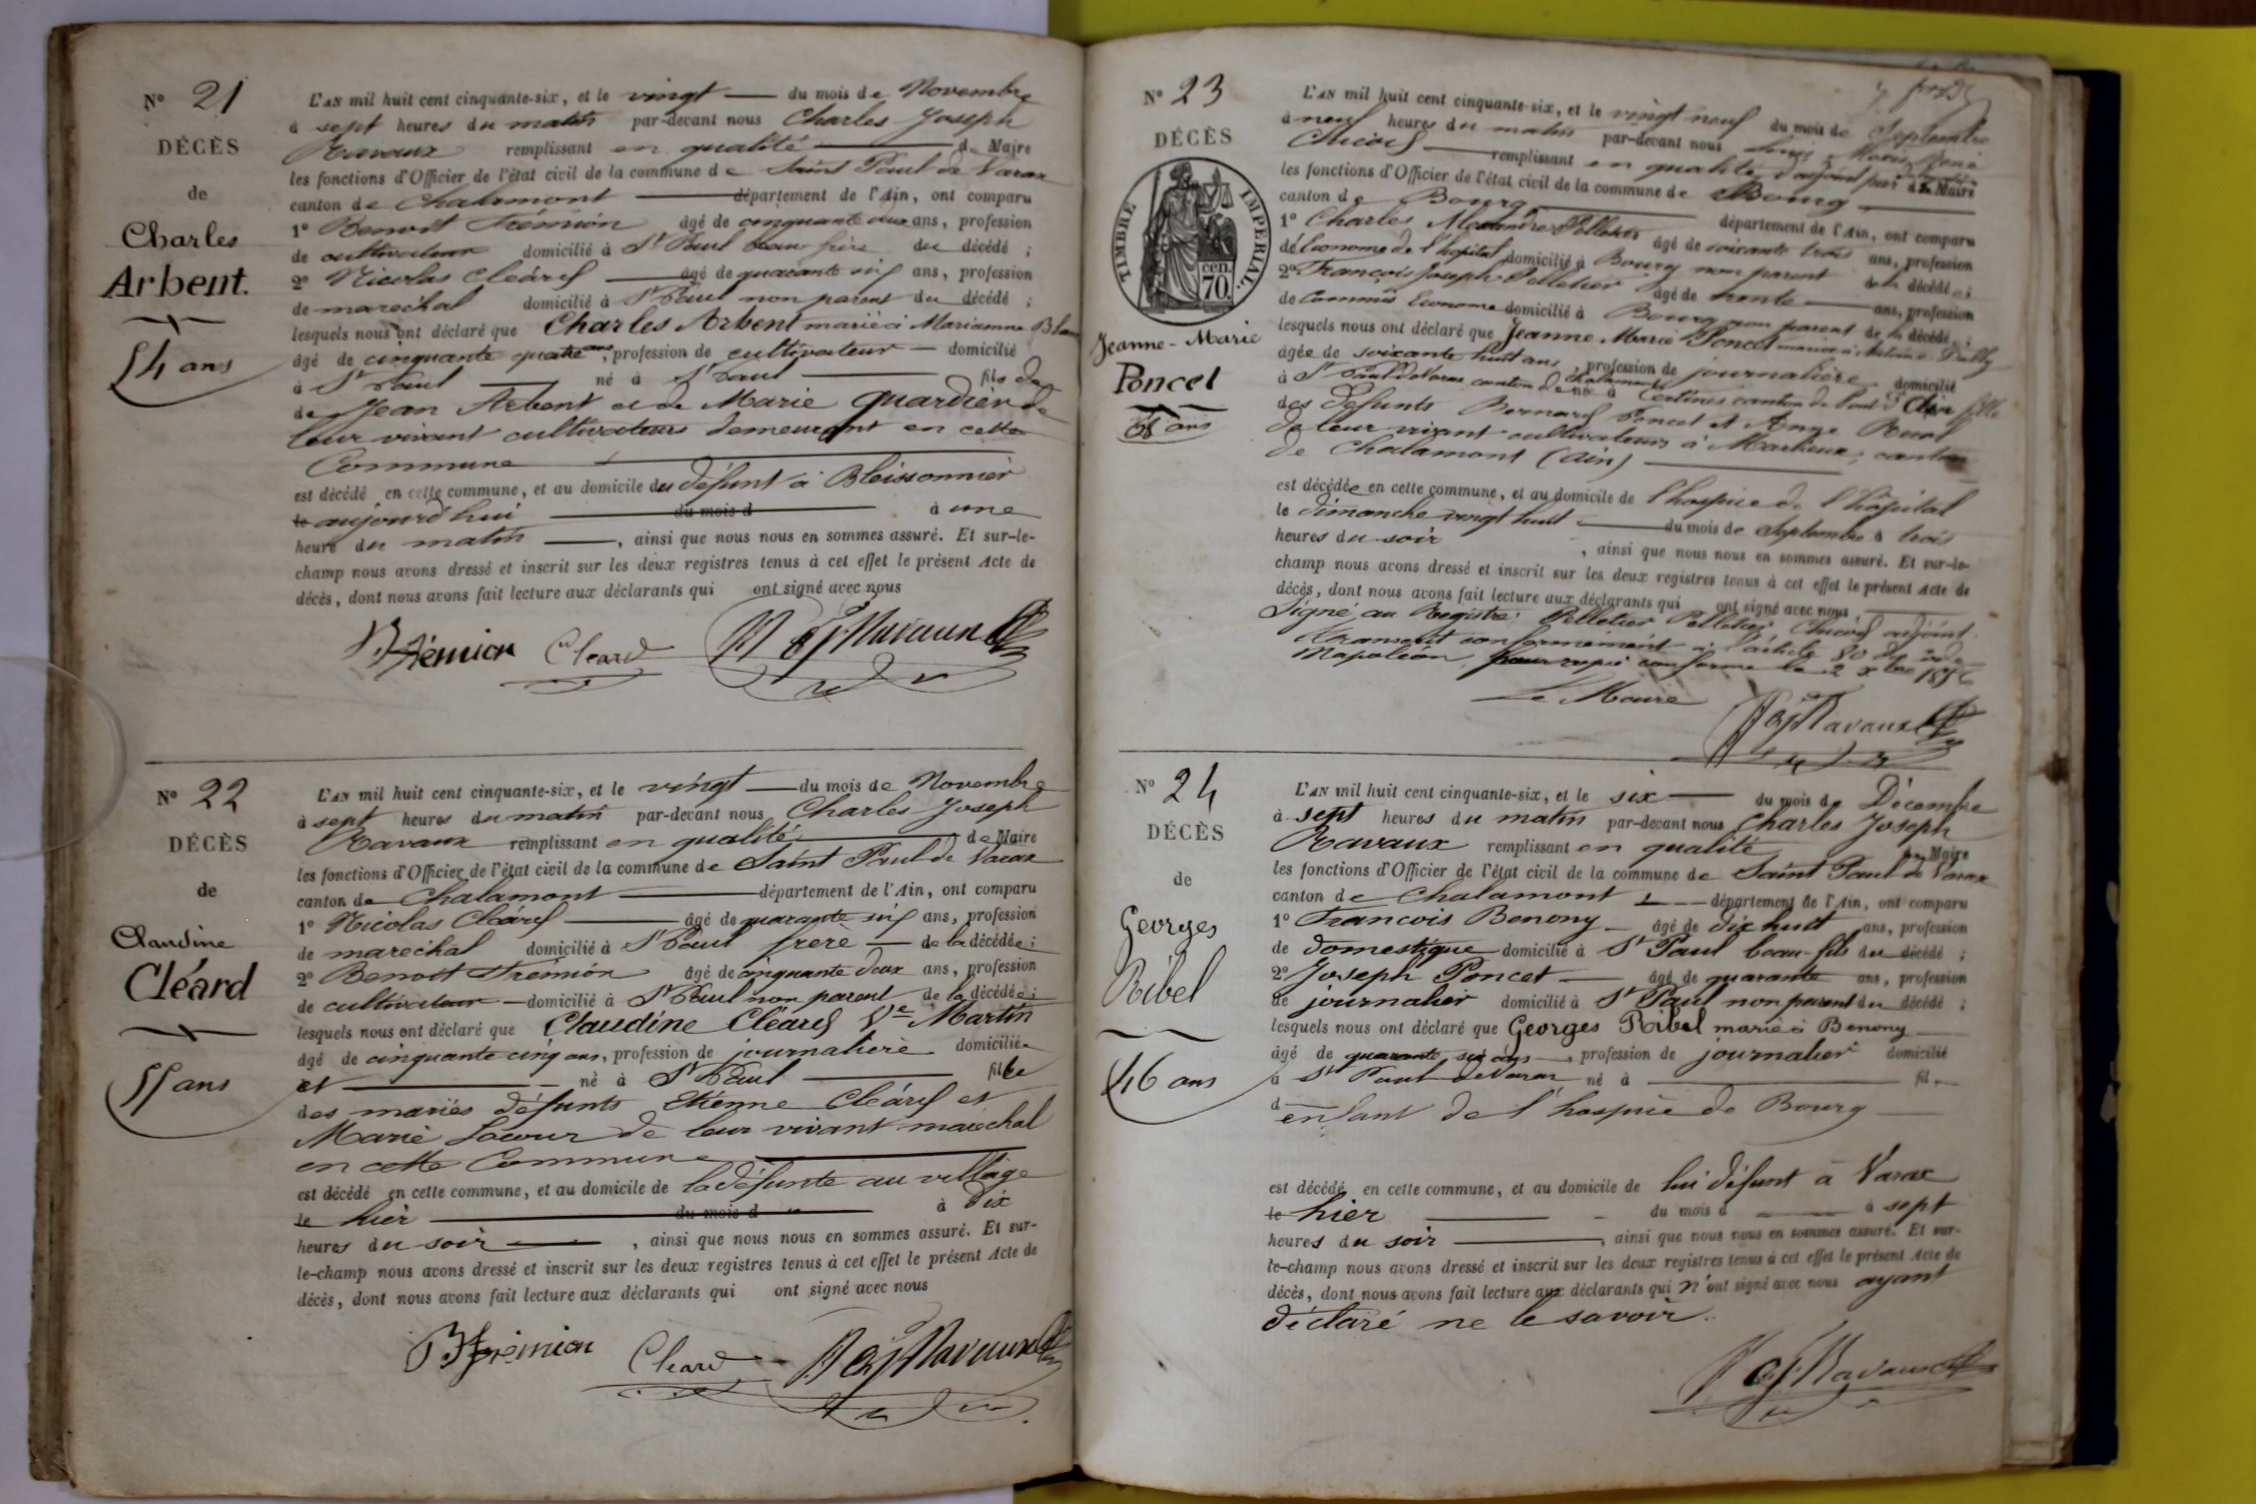 N° 21
DÉCÈS
de
Charles
Arbent.
54 ans
L'AN mil huit cent cinquante-six, et le vingt du mois de Novembre
à sept heures du matin par-devant nous Charles Joseph
Ravaux remplissant en qualité de Maire
les fonctions d'Officier de l'état civil de la commune de Saint Paul de Varax
canton de Chalamont département de l'Ain, ont comparu
1° Benoit Frémion âgé de cinquante deux ans, profession
de cultivateur domicilié à St Paul beau frère du décédé ;
2° Nicolas Cléard âgé de quarante six ans, profession
de marechal domicilié à St Paul non parent du décédé ;
lesquels nous ont déclaré que Charles Arbent marié à Marianne
âgé de cinquante quatre ans, profession de cultivateur domicilié
à St Paul né à St Paul fils de
de Jean Arbent et de Marie Quardier de
leur vivant cultivateurs demeurant en cette
Commune
est décédé en cette commune, et au domicile du défunt à Bleissonnier
le aujourd'hui du mois d à une
heure du matin, ainsi que nous nous en sommes assuré. Et sur-le-
champ nous avons dressé et inscrit sur les deux registres tenus à cet effet le présent Acte de
décès, dont nous avons fait lecture aux déclarants qui ont signé avec nous
B Frémion Cleard Ravaux
N° 22
DÉCÈS
de
Claudine
Cléard
55 ans
L'AN mil huit cent cinquante-six, et le vingt du mois de Novembre
à sept heures du matin par-devant nous Charles Joseph
Ravaux remplissant en qualité de Maire
les fonctions d'Officier de l'état civil de la commune de Saint Paul de Varax
canton de Chalamont département de l'Ain, ont comparu
1° Nicolas Cléard âgé de quarante six ans, profession
de marechal domicilié à St Paul frère de la décédée ;
2° Benoit Frémion âgé de cinquante deux ans, profession
de cultivateur domicilié à St Paul non parent de la décédée ;
lesquels nous ont déclaré que Claudine Cléard Ve Martin
âgé de cinquante cinq ans, profession de journalière domiciliée
et né à St Paul fille
des mariés défunts Etienne Cléard et
Marie Lacour de leur vivant maréchal
en cette Commune
est décédé en cette commune, et au domicile de la défunte au village
le hier du mois d à dix
heures du soir, ainsi que nous nous en sommes assuré. Et sur-
le-champ nous avons dressé et inscrit sur les deux registres tenus à cet effet le présent Acte de
décès, dont nous avons fait lecture aux déclarants qui ont signé avec nous
B Frémion Cleard Ravaux
N° 23
DÉCÈS
TIMBRE IMPÉRIAL.
cen.
70.
Jeanne-Marie
Poncet
68 ans
L'AN mil huit cent cinquante-six, et le vingt neuf du mois de Septembre
à neuf heures du matin par-devant nous Louis Marie René
Chicod remplissant en qualité d'adjoint de Maire
les fonctions d'Officier de l'état civil de la commune de Bourg
canton de Bourg département de l'Ain, ont comparu
1° Charles Alexandre Pelletier âgé de soixante trois ans, profession
d'économe de l'hopital domicilié à Bourg non parent de la décédée ;
2° François Joseph Pelletier âgé de trente ans, profession
de Commis Econome domicilié à Bourg non parent de la décédée ;
lesquels nous ont déclaré que Jeanne Marie Poncet mariée à Antoine
âgée de soixante huit ans, profession de journalière domicilié
à St Paul de Varax canton de Chalamont né à Certines canton de Pont d'Ain fille
des défunts Bernard Poncet et Ange
de leur vivant cultivateurs à Marlieux, canton
de Chalamont (Ain)
est décédée en cette commune, et au domicile de l'hospice de l'hôpital
le dimanche vingt huit du mois de Septembre à trois
heures du soir, ainsi que nous nous en sommes assuré. Et sur-le-
champ nous avons dressé et inscrit sur les deux registres tenus à cet effet le présent Acte de
décès, dont nous avons fait lecture aux déclarants qui ont signé avec nous.
Signé au Registre: Pelletier Pelletier Chicod adjoint.
Transcrit conformément à l'article 80 du code
Napoléon, pour copie conforme le 2 Xbre 1856
Le Maire
Ravaux
N° 24
DÉCÈS
de
Georges
Ribel
46 ans
L'AN mil huit cent cinquante-six, et le six du mois de Décembre
à sept heures du matin par-devant nous Charles Joseph
Ravaux remplissant en qualité de Maire
les fonctions d'Officier de l'état civil de la commune de Saint Paul de Varax
canton de Chalamont département de l'Ain, ont comparu
1° Francois Benony âgé de dix huit ans, profession
de domestique domicilié à St Paul beau-fils du décédé ;
2° Joseph Poncet âgé de quarante ans, profession
de journalier domicilié à St Paul non parent du décédé ;
lesquels nous ont déclaré que Georges Ribel marié à Benony
âgé de quarante six ans, profession de journalier domicilié
à St Paul de Varax né à fil
d enfant de l'hospice de Bourg
est décédé en cette commune, et au domicile de lui défunt à Varax
le hier du mois d à sept
heures du soir, ainsi que nous nous en sommes assuré. Et sur-
le-champ nous avons dressé et inscrit sur les deux registres tenus à cet effet le présent Acte de
décès, dont nous avons fait lecture aux déclarants qui n'ont signé avec nous ayant
déclaré ne le savoir.
Ravaux